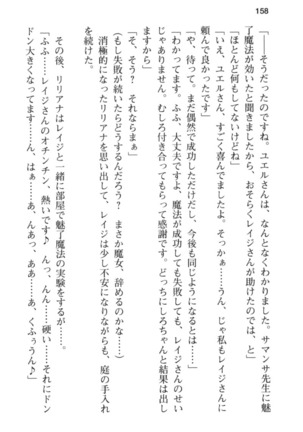 158
「――そうだったのですね、ユエルさんは、なんとなくわかりました。サマンサ先生に魅
了魔法が効いたと聞きましたから、おそらくレイジさんが助けたのでは、と」
「ほとんど何もしてないけどね」
「いえ、ユエルさん、すごく喜んでましたよ。そっかぁ……うん、じゃ私もレイジさんに
頼んで良かったです」
「や、待って。まだ偶然で成功しただけだし、今後も同じようになるとは……」
「わかってます。ふふ、大丈夫ですよ、魔法が成功しても失敗しても、レイジさんのせい
じゃありません。むしろ付き合ってもらって感謝です。どっちにしろちゃんと結果は出し
ますから」
「そ、そう？　それならまぁ」
（もし失敗が続いたらどうするんだろう？　まさか魔女、辞めるのかな……）
消極的になったリリアナを思い出して、レイジは少し不安になりながらも、庭の手入れ
を続けた。
その後、リリアナはレイジと一緒に部屋で魅了魔法の実験をするが……。
「ふふ……レイジさんのオチンチン、熱いです♪　んっ、んん……硬い……それにドン
ドン大きくなってます……ん、はぁ……あ、んあっ、ああ……く、くふぅうん♪」